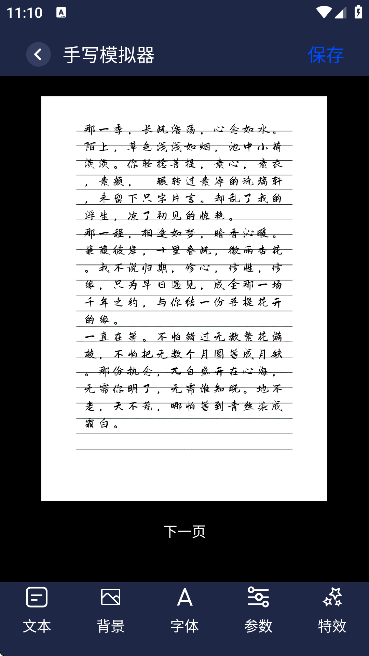 11:10
手写模拟器
保存
那一季，长风浩荡，心念如水。
陌上，草色浅浅如烟，池中小荷
淡淡。你轻捻菩提，素心，素衣
，素颜，辗转过素净的流端轩
，未留下只字片言。却乱了我的
浮生，凉了初见的惊艳。
那一程，相逢如梦，暗香沁暖。
蒹葭彼岸，十里春风，微雨杏花
。我不说归期，修心，修性，修
缘，只为早日遇见，成全那一场
千年之约，与你结一份菩提花开
的缘。
一直在等。不怕错过无数繁花满
枝，不怕把无数个月圆等成月缺
。那份执念，兀自盛开在心海，
无需你明了，无需谁知晓。地不
老，天不荒，哪怕等到青丝染成
霜白。
下一页
文本
背景
字体
参数
特效